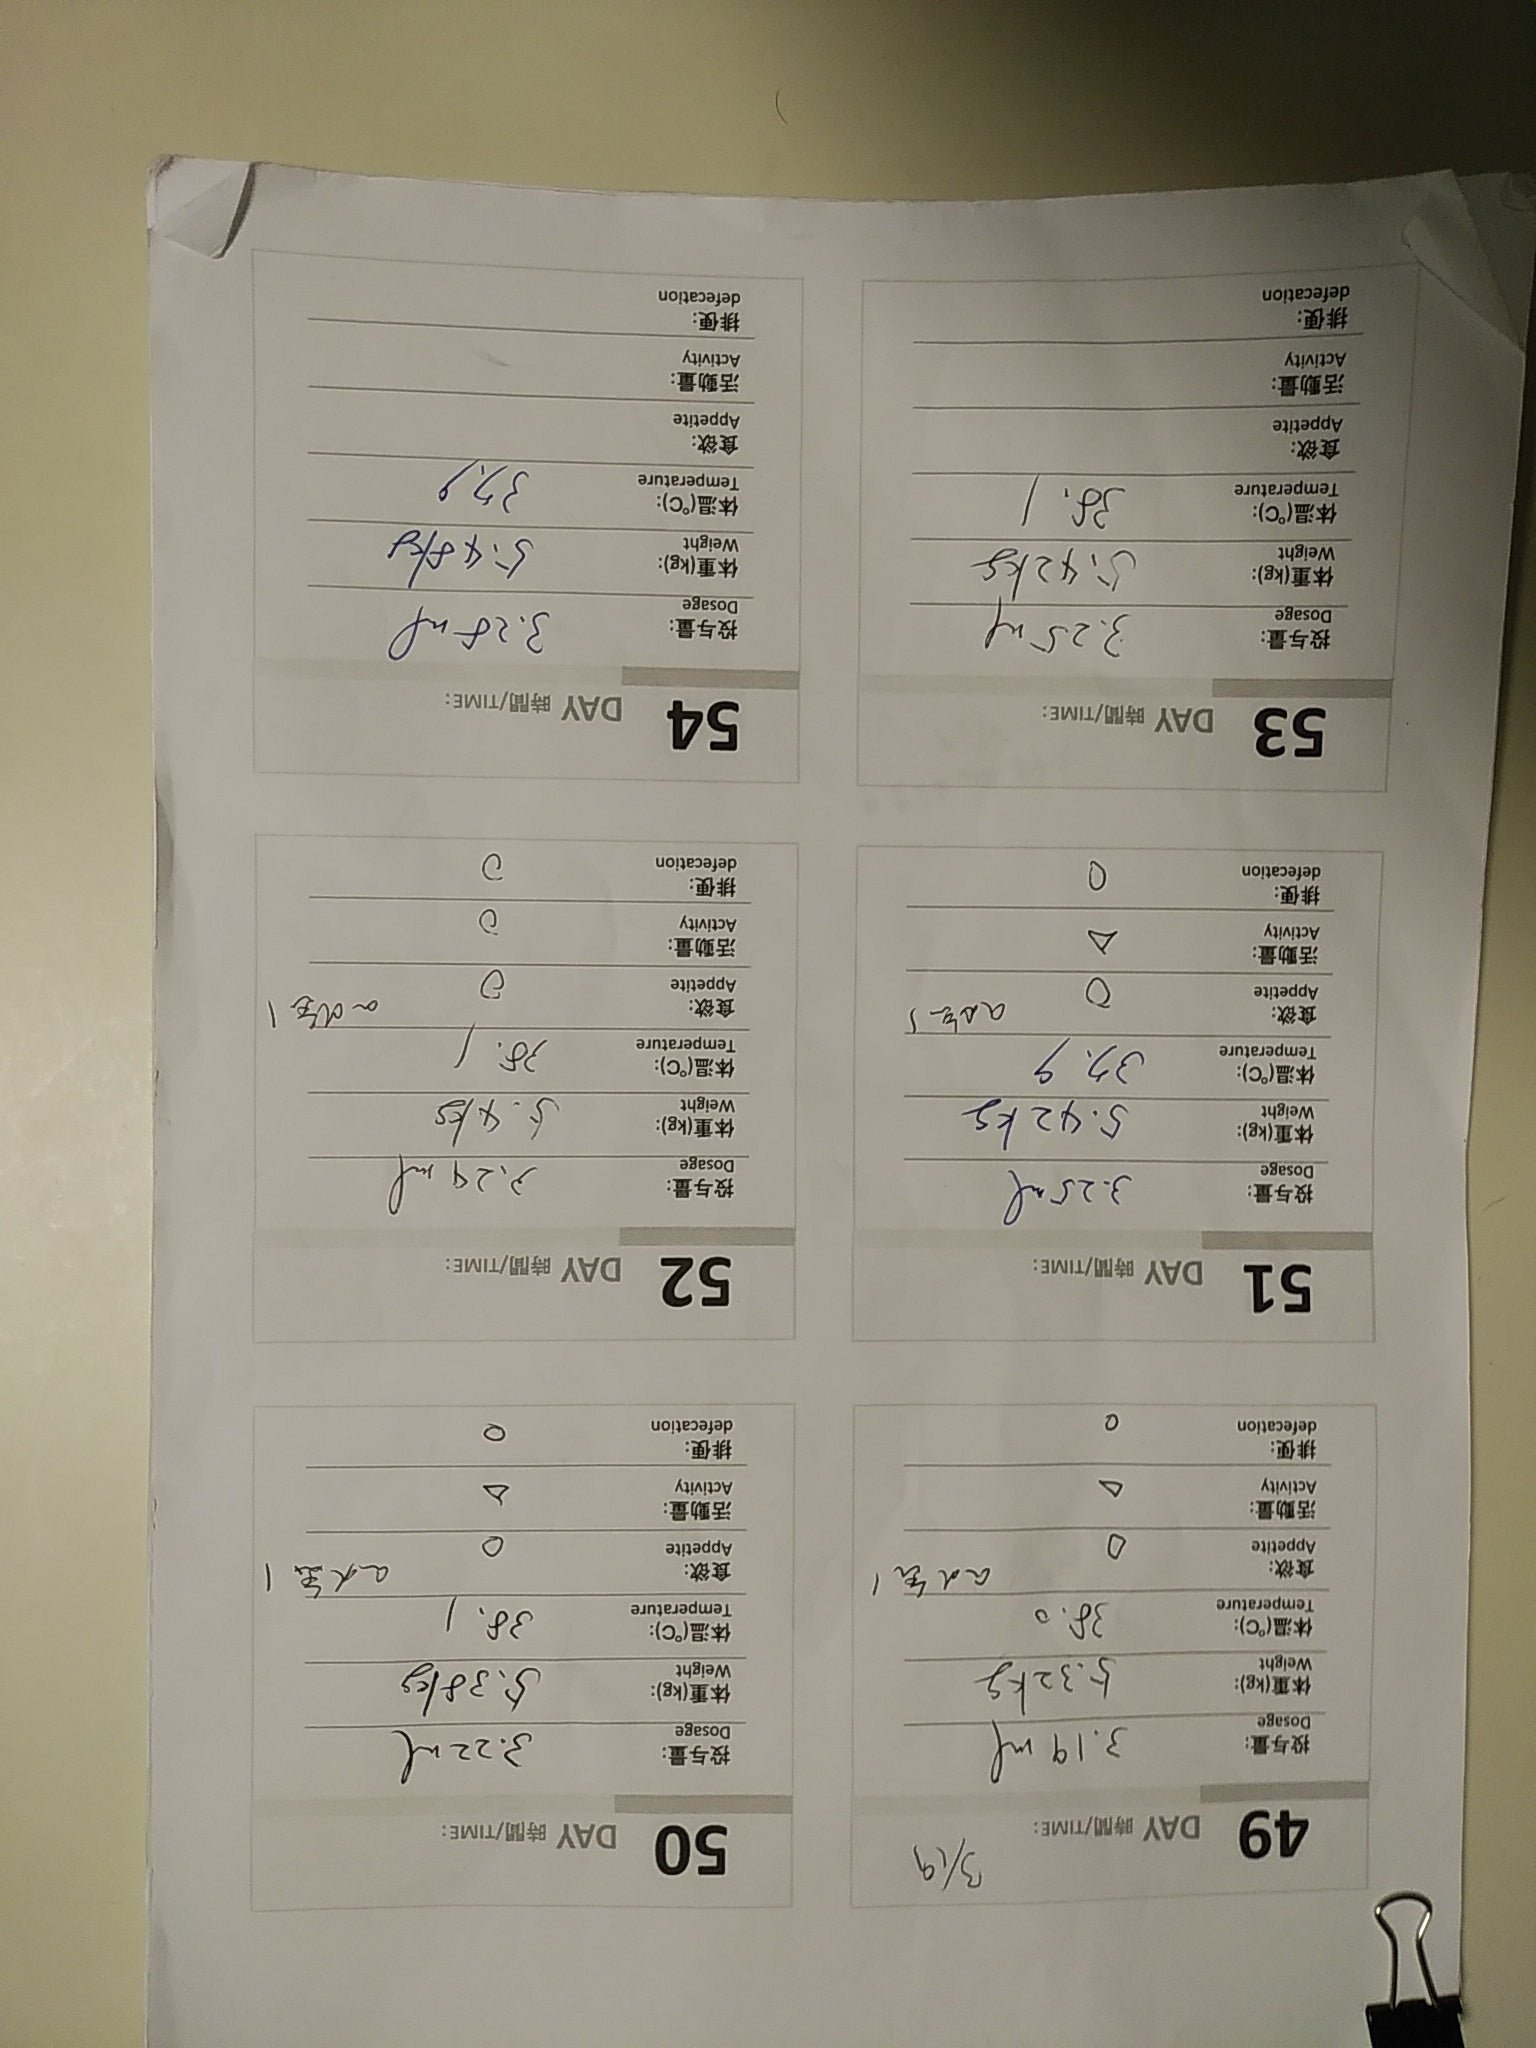 3/19
49 DAY 時間/TIME:
投与量: 3.19 ml
Dosage
体重(kg): 5.32kg
Weight
体温(℃): 38.0
Temperature
食欲: ○
Appetite
活動量: △
Activity
排便: ○
defecation
50 DAY 時間/TIME:
投与量: 3.22ml
Dosage
体重(kg): 5.38kg
Weight
体温(℃): 38.1
Temperature
食欲: ○
Appetite
活動量: △
Activity
排便: ○
defecation
51 DAY 時間/TIME:
投与量: 3.25ml
Dosage
体重(kg): 5.42kg
Weight
体温(℃): 37.9
Temperature
食欲: ○
Appetite
活動量: △
Activity
排便: ○
defecation
52 DAY 時間/TIME:
投与量: 3.24ml
Dosage
体重(kg): 5.4kg
Weight
体温(℃): 38.1
Temperature
食欲: ○
Appetite
活動量: ○
Activity
排便: ○
defecation
53 DAY 時間/TIME:
投与量: 3.25ml
Dosage
体重(kg): 5.42kg
Weight
体温(℃): 38.1
Temperature
食欲:
Appetite
活動量:
Activity
排便:
defecation
54 DAY 時間/TIME:
投与量: 3.28ml
Dosage
体重(kg): 5.48kg
Weight
体温(℃): 37.9
Temperature
食欲:
Appetite
活動量:
Activity
排便:
defecation